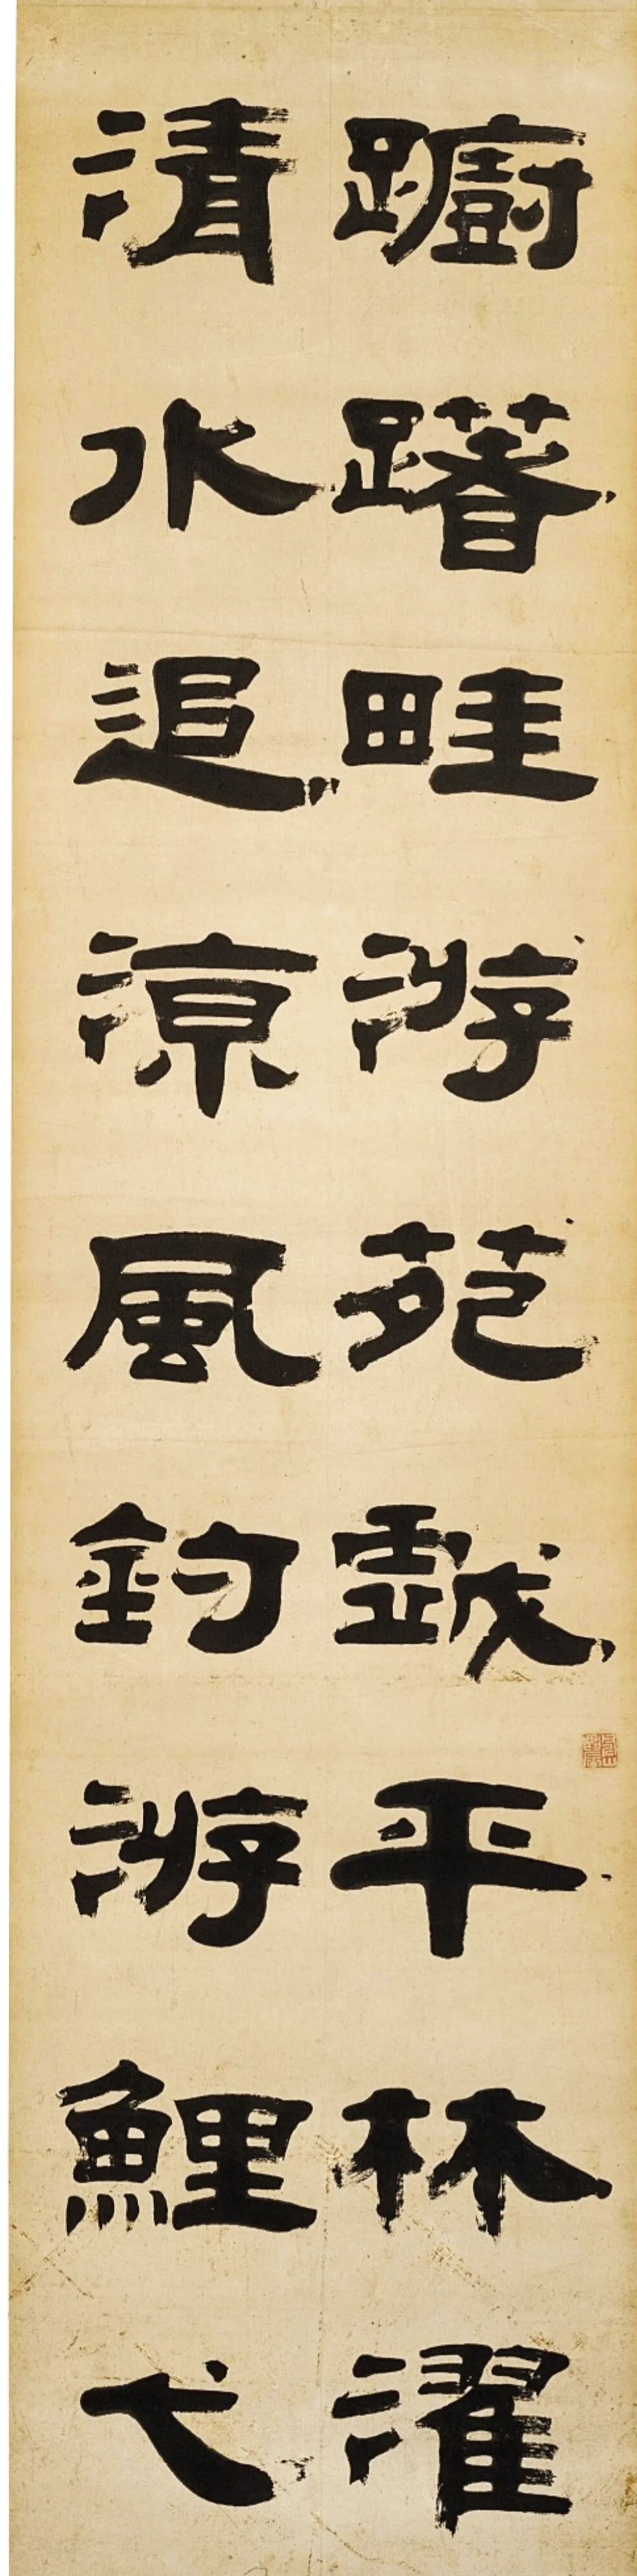 躕躇畦游苑戲平林濯
清水追涼風釣游鯉弋